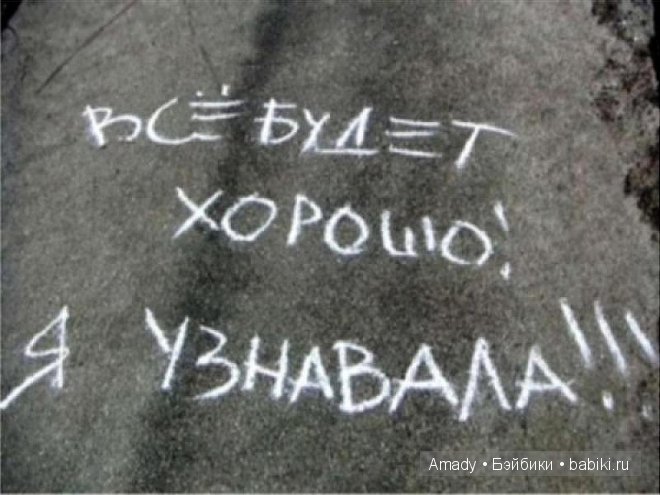 ВСЁ БУДЕТ
ХОРОШО!
Я УЗНАВАЛА!!!
Amady • Бэйбики • babiki.ru